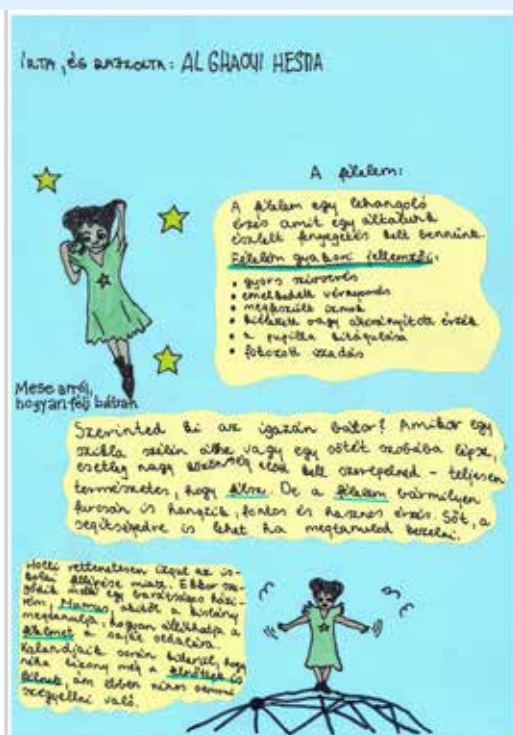 ÍRTA, ÉS RAJZOLTA: AL GHAOUI HESNA
A félelem:
A félelem egy lehangoló
érzés amit egy általunk
észlelt fenyegetés kelt bennünk.
Félelem gyakori jellemzői:
• gyors szívverés
• emelkedett vérnyomás
• megfeszült izmok
• kiélezett vagy alacsonyított érzék
• a pupilla kitágulása
• fokozott izzadás
Mese arról,
hogyan félj bátran
Szerinted ki az igazán bátor? Amikor egy
szikla szélén állsz vagy egy sötét szobába lépsz,
esetleg nagy közönség előtt kell szerepelned - teljesen
természetes, hogy félsz. De a félelem bármilyen
furcsán is hangzik, fontos és hasznos érzés. Sőt, a
segítségedre is lehet ha megtanulod kezelni.
Holli rettenetesen izgul az is-
kolai fellépése miatt. Ekkor sze-
gődik mellé egy barátságos házi-
rém, Mumus, akitől a kislány
megtanulja, hogyan állíthatja a
félelmet a saját oldalára.
Kalandjaik során kiderül, hogy
néha bizony még a felnőttek is
félnek, ám ebben nincs semmi
szégyellni való.